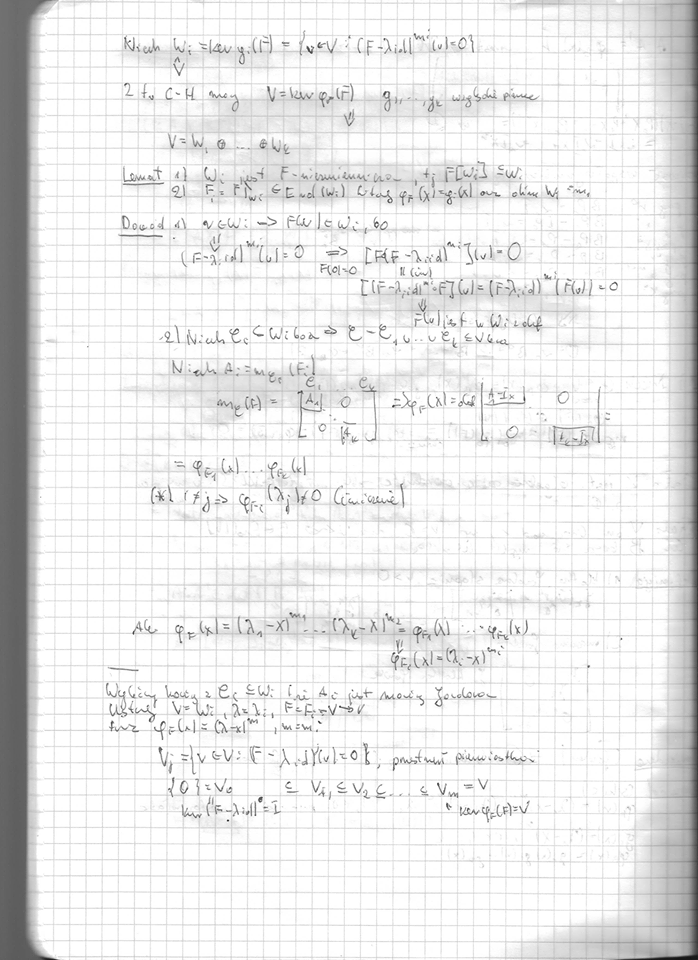 Niech Wᵢ = ker gᵢ(F) = {v∈V : (F-λᵢid)^mᵢ(v)=0}
Z tw C-H mamy V = ker φ_F(F) g₁,...,g_k względnie pierwsze
⇓
V = W₁ ⊕ ... ⊕ W_k
Lemat 1) Wᵢ jest F-niezmiennicza, tj F[Wᵢ] ⊆ Wᵢ
2) Fᵢ = F|Wᵢ ∈ End(Wᵢ) φ_Fᵢ(x) = gᵢ(x) oraz dim Wᵢ = mᵢ
Dowód 1) v∈Wᵢ → F(v)∈Wᵢ, bo
⇓
(F-λᵢid)^mᵢ(v)=0 ⇒ [F(F-λᵢid)^mᵢ](v)=0
F(0)=0 || (ćw)
[(F-λᵢid)^mᵢ∘F](v) = (F-λᵢid)^mᵢ(F(v))=0
⇓
F(v) jest w Wᵢ z def
2) Niech 𝒞ᵢ ⊂ Wᵢ baza ⇒ 𝒞 = 𝒞₁∪...∪𝒞_k ⊆ V baza
Niech Aᵢ = m_𝒞ᵢ(Fᵢ)
𝒞₁ 𝒞_k
m_𝒞(F) = [A₁ 0 ⋱ 0 A_k] ⇒ φ_F(λ) = det |A₁-Ix 0 ⋱ 0 A_k-Ix| =
= φ_F₁(x)...φ_F_k(x)
(*) i≠j ⇒ φ_Fᵢ(λⱼ)≠0 (ćwiczenie)
Ale φ_F(x) = (λ₁-x)^m₁ ... (λ_k-x)^m₂ = φ_F₁(λ) ... φ_F_k(x)
⇓
φ_Fᵢ(x) = (λᵢ-x)^mᵢ
𝒞ᵢ ⊆ Wᵢ że Aᵢ jest macierzą Jordana
Ustalmy V=Wᵢ, λ=λᵢ, F=Fᵢ=V→V
φ_F(x) = (λ-x)^m, m=mᵢ
Vⱼ = {v∈V : (F-λᵢid)ʲ(v)=0}, przestrzeń pierwiastkowa
{0} = V₀ ⊆ V₁ ⊆ V₂ ⊆ ... ⊆ V_m = V
ker(F-λid)⁰ = I ker φ_F(F)=V